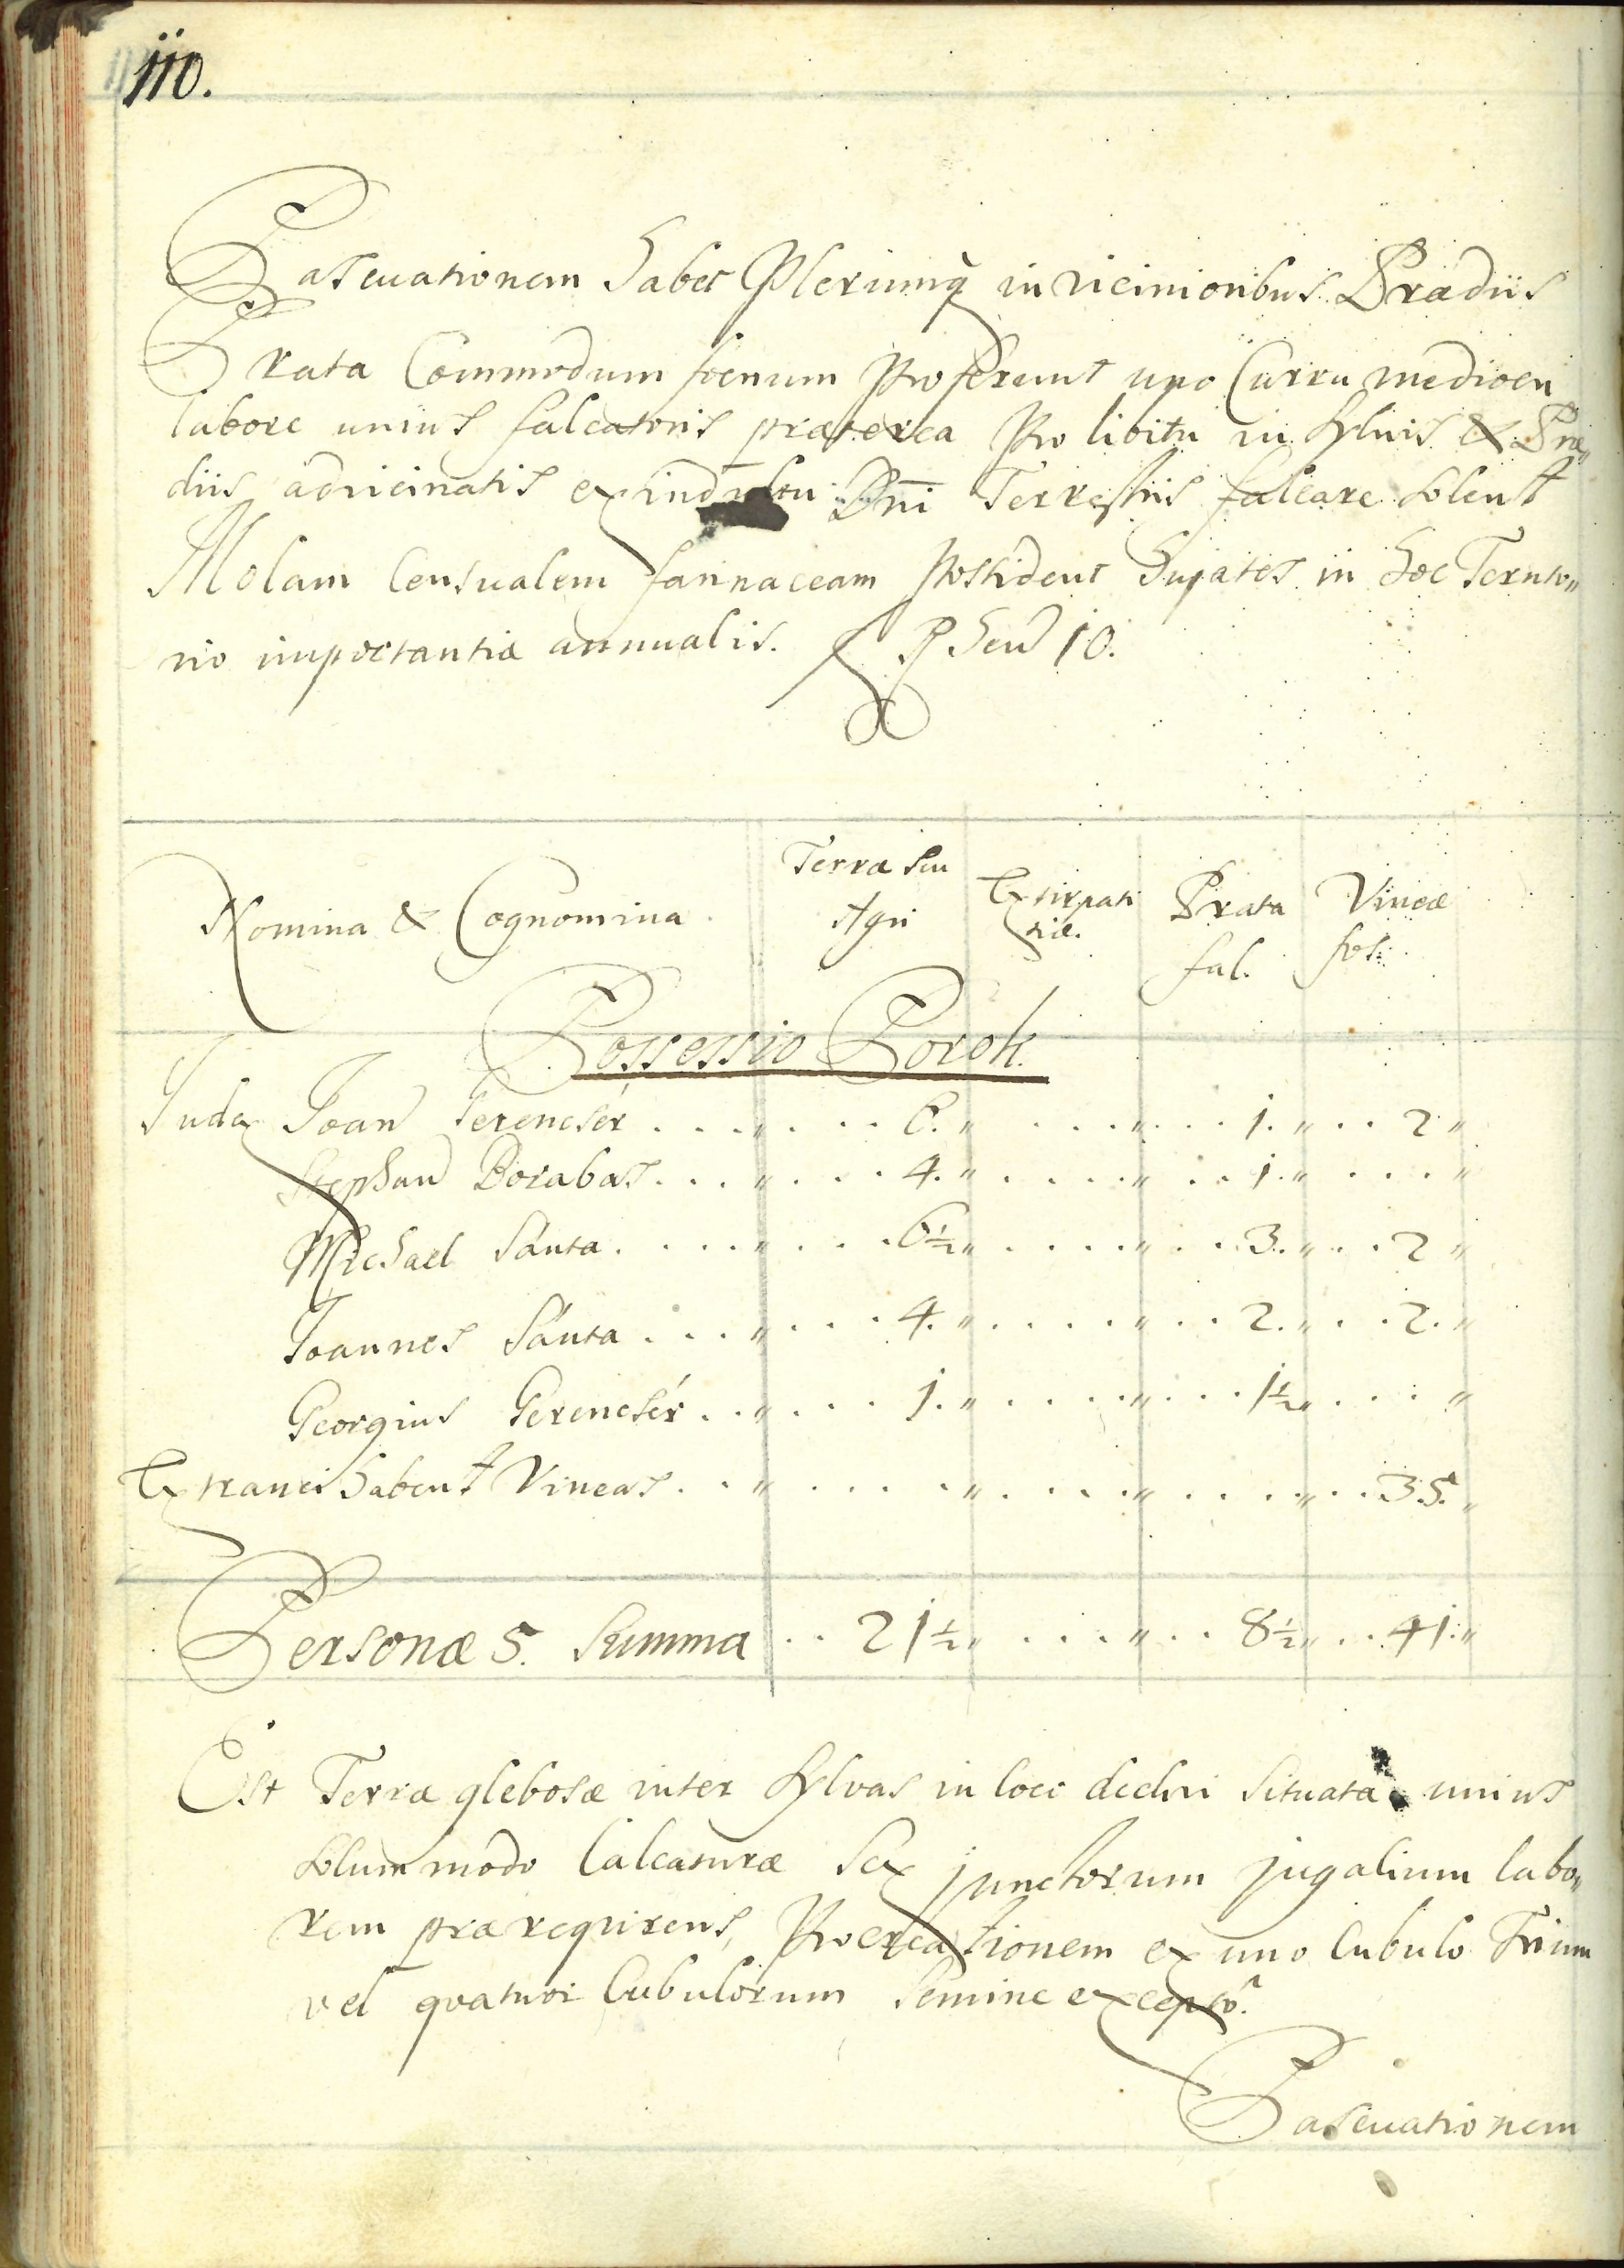 110.
Pascuationem habet Plerumq̀ in vicinioribus Prædiis
Prata Commodum foenum Proferunt uno Curru mediocri
labore unius falcatoris præterea Pro libitu in Sylvis & Præ„
diis advicinatis ex indultu Dni Terrestris falcare solent
Molam Censualem farinaceam Possident Hujates in hoc Territo„
rio importantiæ annualis. R hen 10.
Nomina & Cognomina Terræ seu Agri Extirpati tiæ. Prata fal. Vineæ fos:
Possessio Porok.
Judex Joan Gerencsér . . . „ . . . 6. „ . . . . „ . . . 1. „ . . 2 „
Stephan Borabas . . . „ . . . 4. „ . . . . . „ . . 1. „ . . . . „
Michael Sánta . . . . „ . . . 6½ „ . . . . „ . . 3. „ . . 2 „
Joannes Sánta . . . „ . . . 4. „ . . . . . „ . . 2. „ . . 2. „
Georgius Gerencsér . . „ . . . 1. „ . . . . . „ . . . 1½ „ . . . . „
Extranei habent Vineas . . „ . . . . . „ . . . . „ . . . . „ . . 35. „
Personæ 5. Summa . . 21½ „ . . . . „ . . 8½ „ . . 41. „
Est Terra glebosæ inter Sylvas in loco declivi situata unius
solummodo Calcaturæ Sex junctorum jugalium labo„
rem prærequirens, Procreationem ex uno Cubulo Trium
vel quatuor Cubulorum Semine exceptô.
Pascuationem